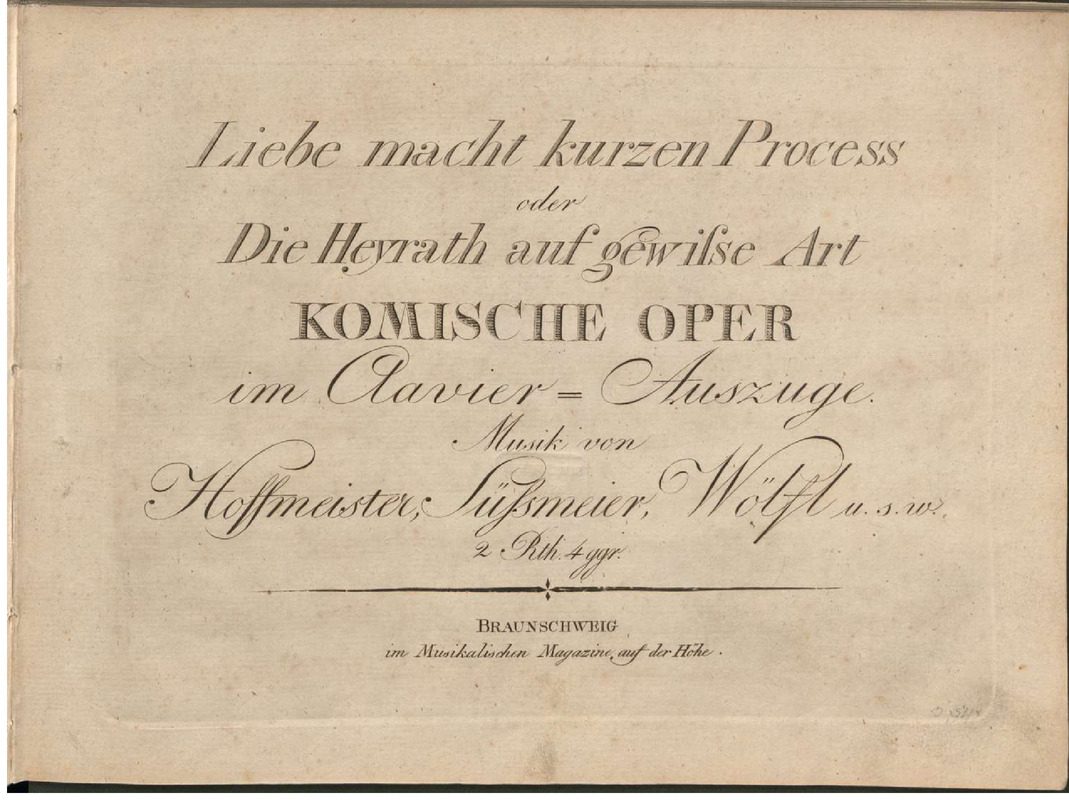 Liebe macht kurzen Process
oder
Die Heyrath auf gewiſse Art
KOMISCHE OPER
im Clavier = Auszuge.
Musik von
Hoffmeister, Süſsmeier, Wölfl u. s. w.
2 Rth. 4 ggr.
BRAUNSCHWEIG
im Musikalischen Magazine, auf der Höhe.